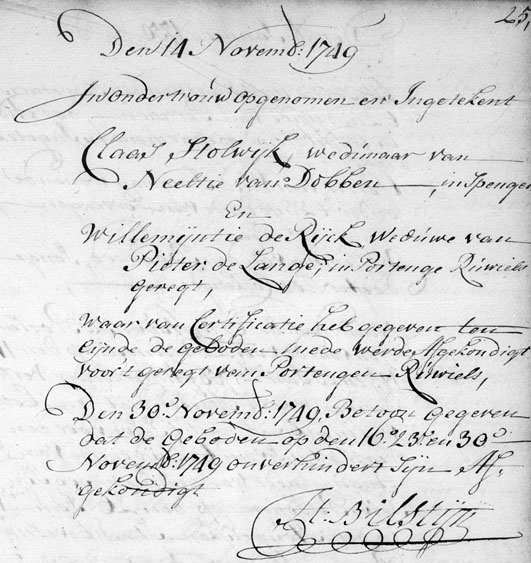 25,
Den 14 Novemb: 1749
In ondertrouw opgenomen en Ingetekent
Claas Stolwijk, weduwaar van
Neeltie van Dobben, in Spengen
En
Willemijntie de Rijck Weduwe van
Pieter de Lange, in Portenge Ruwiels
geregt,
Waar van Certificatie heb gegeven ten
eijnde de geboden mede werde Afgekondigt
voor't geregt van Portengen Ruwiels,
Den 30e Novemb: 1749, Betoon gegeven
dat de Geboden op den 16e 23e en 30e
Novemb: 1749 onverhindert Sijn Af-
gekondigt
H: Bilstijn